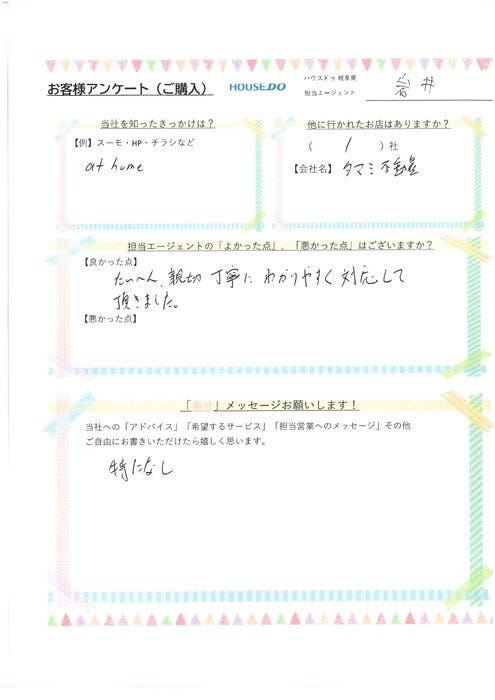 お客様アンケート（ご購入）
HOUSEDO
ハウスドゥ 岐阜東
担当エージェント
岩井
当社を知ったきっかけは？
【例】スーモ・HP・チラシなど
at home
他に行かれたお店はありますか？
（ 1 ）社
【会社名】タマミ不動産
担当エージェントの「よかった点」、「悪かった点」はございますか？
【良かった点】
たいへん、親切 丁寧に わかりやすく 対応して
頂きました。
【悪かった点】
「幸せ」メッセージお願いします！
当社への「アドバイス」「希望するサービス」「担当営業へのメッセージ」その他
ご自由にお書きいただけたら嬉しく思います。
特になし